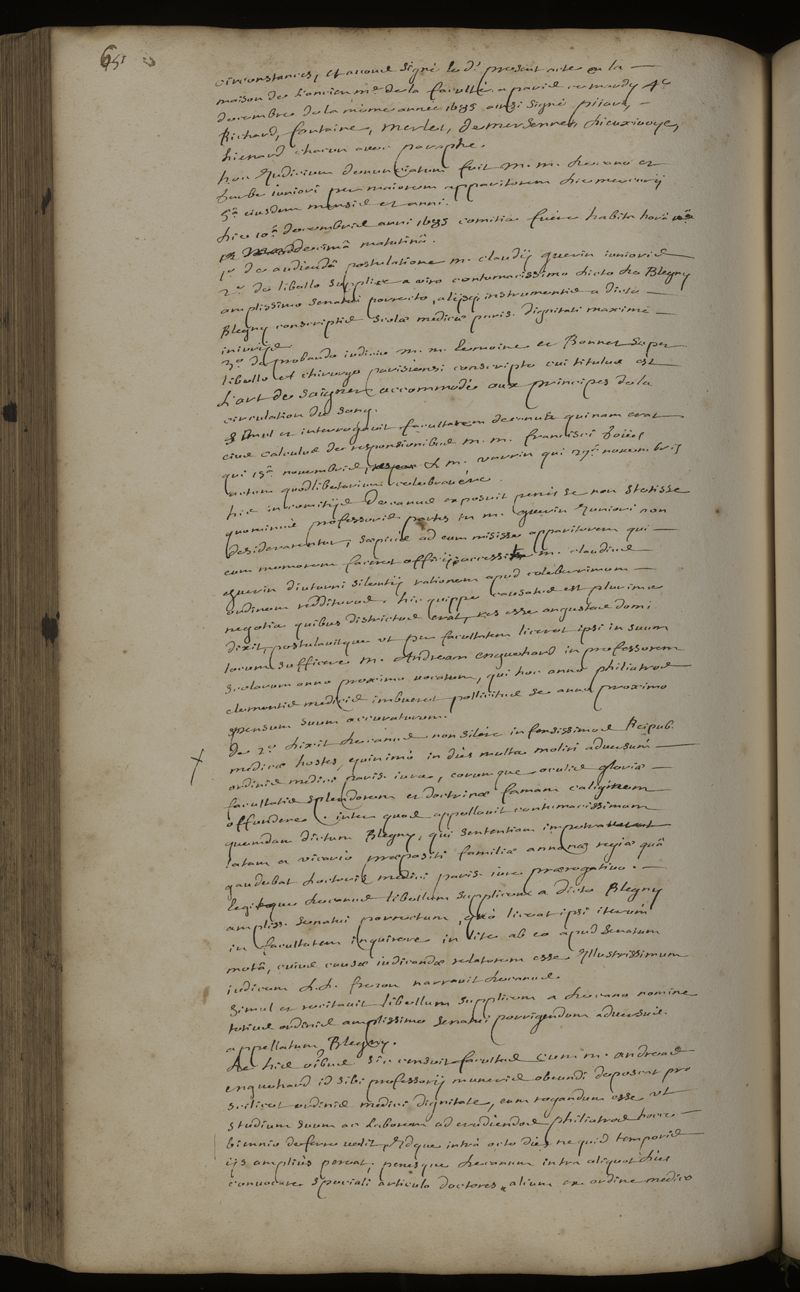 651
circonstances, et avons signé le d. present acte en la
maison de l'ancien m.e de la faculté a paris ce mardy 4e
decembre de la mème année 1685 ainsi signé pijart,
Richard, fontaine, Merlet, de Mersennes, Dieuxivoye,
hienard chacun avec paraphe.
hoc Judicium denunciatum fuit M. M. decano et
iuniori per maiorem apparitorem die mercurij
5.a eiusdem mensis et anni.
Die 10.a decembris anni 1685 comitia fuere habita horâ
decimâ matutinâ.
1.o de audiendâ postulatione M. claudij quevin iunioris
2.o de libello supplice a viro contumacissimo dicto de Blegny
amplissimo senatui porrecto, alijsq instrumentis a dicto
Blegny conscriptis scolæ medicæ paris. dignitati maximè
iniurijs
3.o de probando iudicio M. M. Lemoine et Bonnet super
libello et chirurgo parisiensi conscripto cui titulus est
L'art de saigner accommodé aux principes de la
circulation du sang.
simul et interrogavit facultatem decanus quinam erat
eius calculus de responsionibus M. M. francisci
qui 15.a novembris, & M. qui 29.a novembris
actum quodlibetarium celebravere.
hic in comitijs Decanus exposuit penes se non stetisse
quominus professoris partes in M. quevin Juniori non
desiderarentur, sæpius ad eum misisse apparitorem qui
eum memorem faceret officij, accessit M. claudius
quevin diuturni silentij rationem apud celeberrimum
ordinem redditurus. hic quippe causatus est plurima
negotia quibus districtus erat, res esse angustas domi
dixit, postulavitque ut per facultatem liceret ipsi in suum
locum sufficere M. Andream enguehard in professorem
scolarum anno proximo vocatum, qui hoc anno philiatros
elementis medicis imbueret pollicitus se anno proximo
pensum suum accuraturum.
de 2.o dixit Decanus non silere infensissimos Reipub.
medicæ hostes, quinimò in dies multa moliri adversùm
ordinis medici paris. iura, eorumque oculis gloriæ
facultatis splendorem et doctrinæ famam caliginem
offundere. inter quos appellavit contumacissimum
quemdam dictum Blegny, qui sententiam
latam a vicario præpositi familiæ regiæ quâ
gaudebat doctoris medici paris. iure prærogativo.
legitque decanus libellum supplicem a dicto Blegny
ampliss. senatui porrectum, quò liceat ipsi iterùm
in facultatem inquirere in lite ab eo apud senatum
motâ, cuius causæ iudicandæ relatorem esse Illustrissimum
iudicem D.D. frezon narravit decanus.
simul et recitavit libellum supplicem a decano nomine
totius ordinis amplissimo senatui porrigendum adversùs
appellatum Blegny.
De his omnibus sic censuit facultas cum M. andreas
enguehard id sibi professorij muneris obeundi deposcat pro
scilicet ordinis medici dignitate, eum rogandum esse ut
studium suum ac laborem ad erudiendos philiatros hocce
biennio deferre velit, Idque intra octo dies ne quid temporis
ijs ampliùs pereat, penesque decanum intra aliquot dies
convocare speciali articulo doctores, alium ex ordine medico